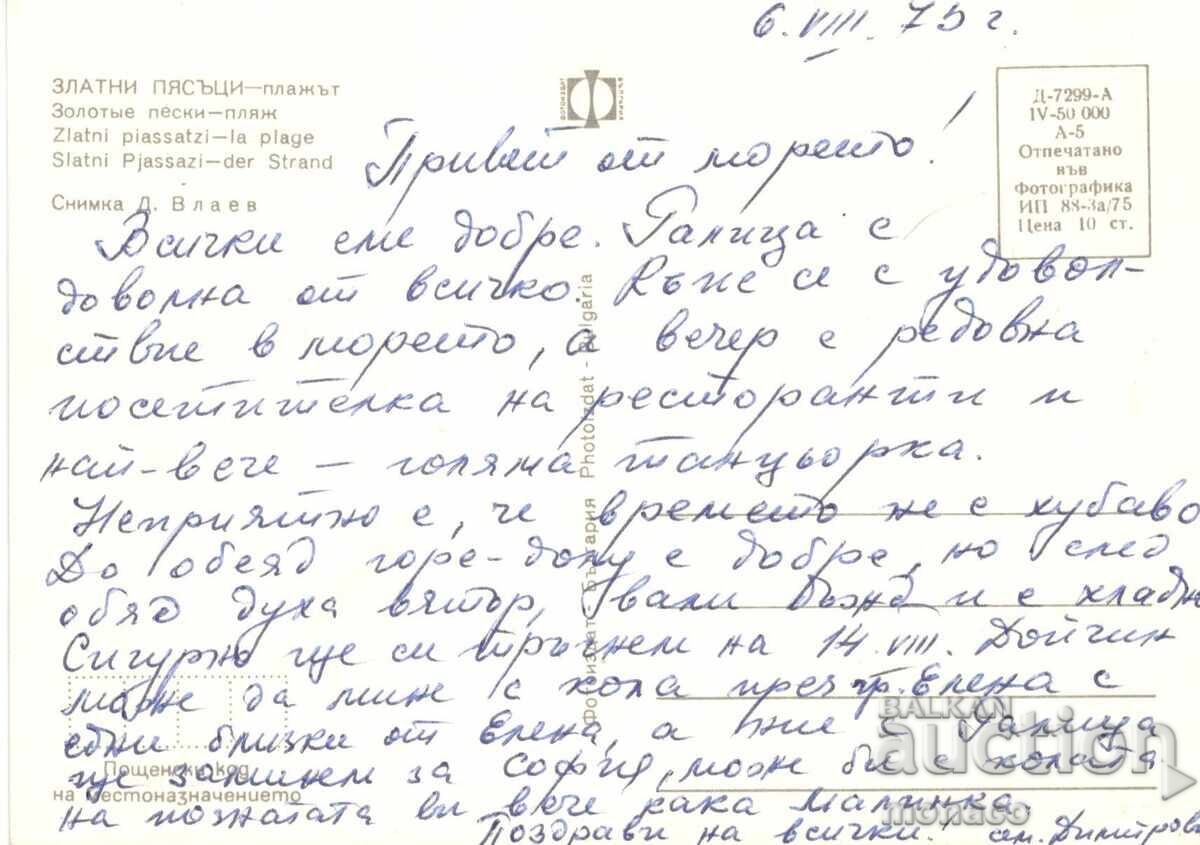 6.VIII.75 г.
ЗЛАТНИ ПЯСЪЦИ—плажът
Золотые пески—пляж
Zlatni piassatzi—la plage
Slatni Pjassazi—der Strand
Снимка Д. Влаев
Д-7299-А
IV-50 000
А-5
Отпечатано
във
Фотографика
ИП 88-За/75
Цена 10 ст.
Привет от морето!
Всички сме добре. Галица е
доволна от всичко. Къпе се с удовол-
ствие в морето, а вечер е редовна
посетителка на ресторанти и
най-вече — голяма танцьорка.
Неприятно е, че времето не е хубаво
До обяд горе-долу е добре, но след
обяд духа вятър, вали дъжд и е хладно
Сигурно ще си тръгнем на 14 VIII. Дойчин
може да мине с кола през гр. Елена с
едни близки от Елена, а ние с Галица
ще заминем за София, може би с колата
на познатата ви вече кака Малинка.
Поздрави на всички! сем. Димитрови
Фотоиздат - България Photoizdat - Bulgaria
Пощенски код
на местоназначението
BALKAN
auction
monaco